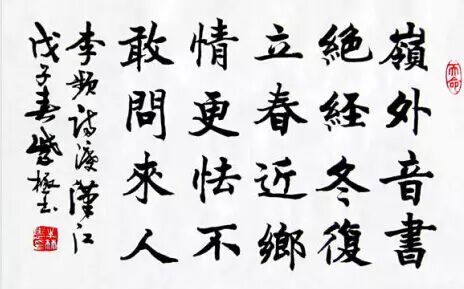 嶺外音書
絶經冬復
立春近鄉
情更怯不
敢問來人
李頻詩渡漢江
戊子春